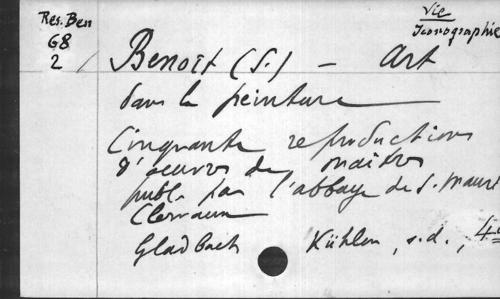 Res. Ben
68
2
Vie
Iconographie
Benoît (S.) - Art
dans la peinture
Cinquante reproductions
d'oeuvres de maîtres
publ. par l'abbaye de S. Mauri
Clervaux
Gladbach Kühlen, s.d., 4°